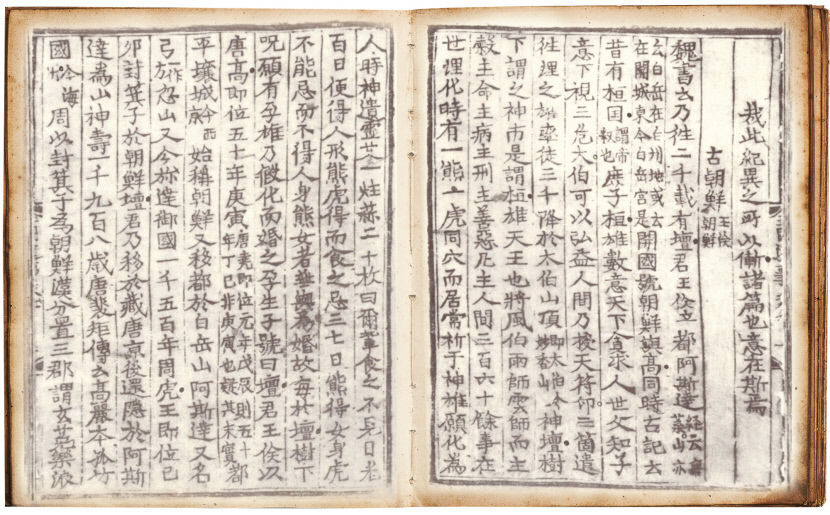 㦲此紀異之所以慚諸篇也意在斯焉
古朝鮮 王倹朝鮮
魏書云乃徃二千載有壇君王倹立都阿斯逹 経云無葉山亦
云白岳在白州地或云在開城東今白岳宮是 開國號朝鮮與高同時古記云
昔有桓囯 謂帝釈也 庶子桓雄數意天下貪求人世父知子
意下視三危太伯可以弘益人間乃授天符印三箇遣
徃理之雄率徒三千降於太伯山頂 即太伯今妙香山 神壇樹
下謂之神市是謂桓雄天王也將風伯雨師雲師而主
糓主命主病主刑主善惡凡主人間三百六十餘事在
世理化時有一熊一虎同穴而居常祈于神雄願化為
人時神遺靈艾一炷蒜二十枚曰爾軰食之不見日光
百日便得人形熊虎得而食之忌三七日熊得女身虎
不能忌而不得人身熊女者無與為婚故每於壇樹下
呪願有孕雄乃假化而婚之孕生子號曰壇君王倹以
唐高即位五十年庚寅 唐堯即位元年戊辰則五十年丁巳非庚寅也疑其未實 都
平壤城 今西京 始稱朝鮮又移都於白岳山阿斯逹又名
弓 一作方 忽山又今旀達御國一千五百年周虎王即位己
卯封箕子於朝鮮壇君乃移於藏唐亰後還隱於阿斯
逹為山神壽一千九百八歳唐裵矩傳云高麗本孤竹
國 今海州 周以封箕子為朝鮮漢分置三郡謂玄菟樂浪